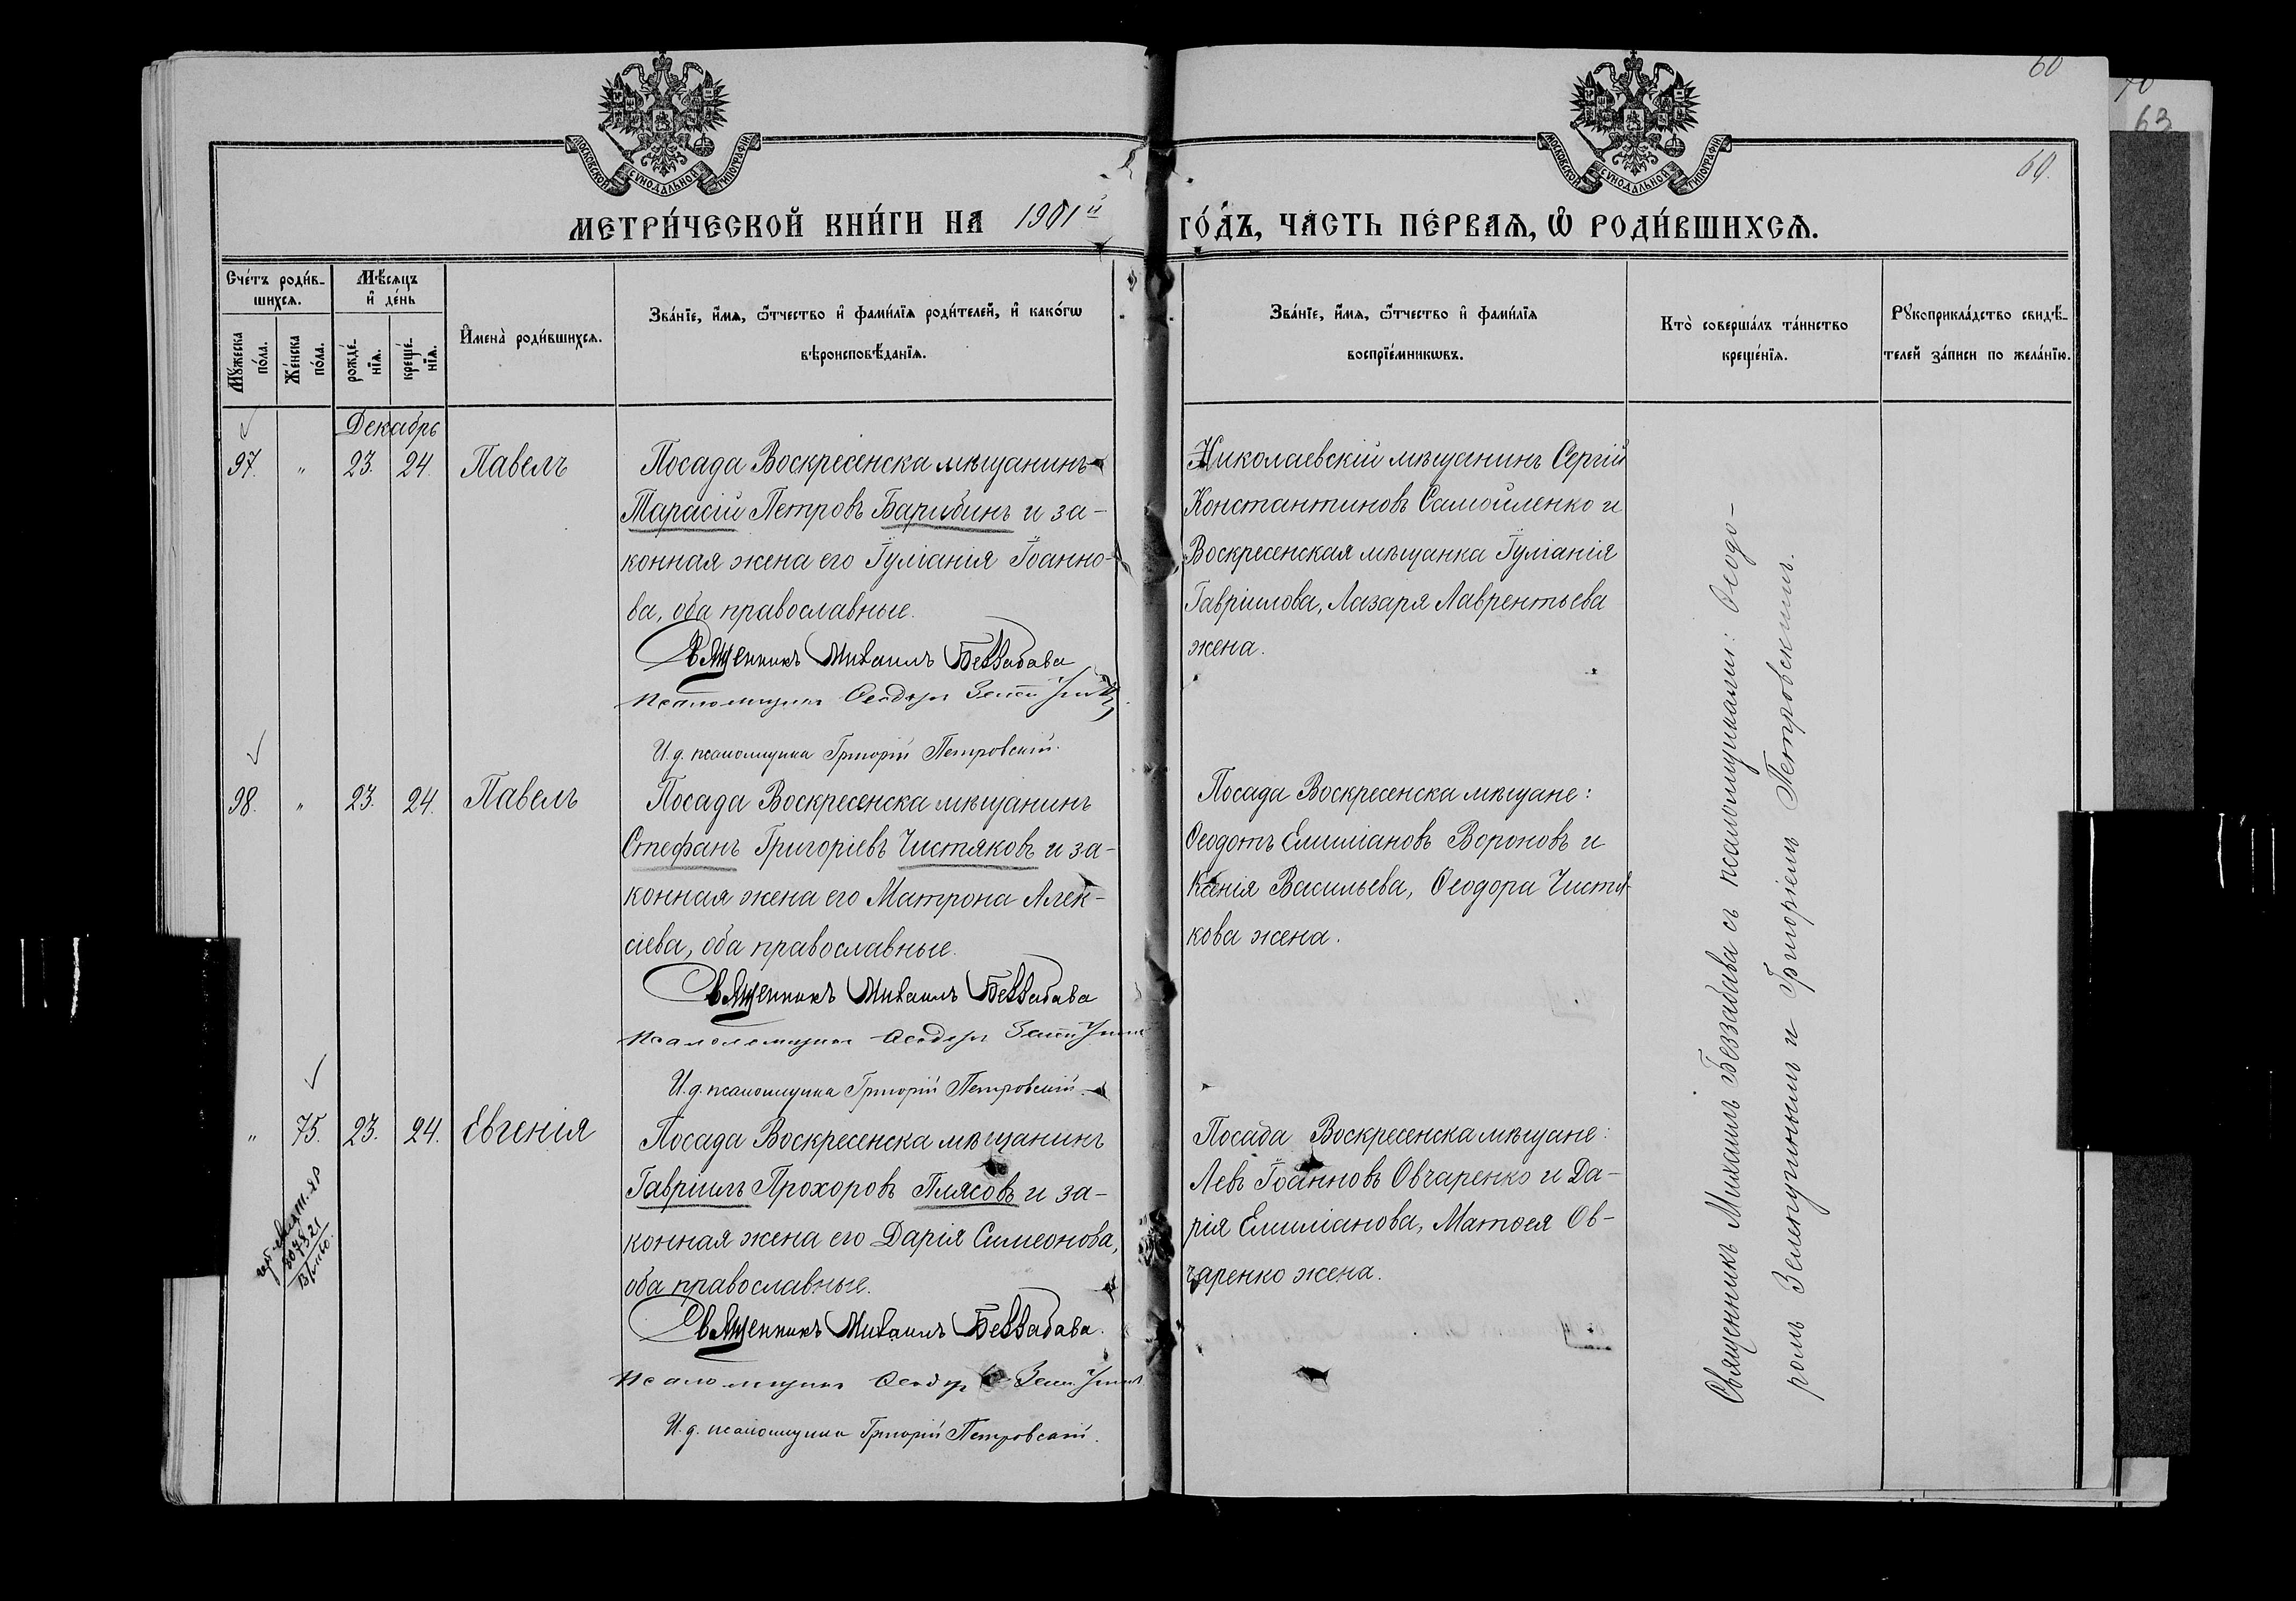 60
70
63
69.
МОСКОВСКОЙ СУНОДАЛЬНОЙ ТИПОГРАФІИ
МОСКОВСКОЙ СУНОДАЛЬНОЙ ТИПОГРАФІИ
МЕТРИ́ЧЕСКОЙ КНИ́ГИ НА 1901й ГО́ДЪ, ЧА́СТЬ ПЕ́РВАѦ, Ѡ҆ РОДИ́ВШИХСѦ.
Сче́тъ роди́в-
шихсѧ.
Мѣ́сѧцъ
и҆ де́нь
Мꙋ́жеска
по́ла.
Же́нска
по́ла.
рожде́-
нїѧ.
креще́-
нїѧ.
И҆мена̀ роди́вшихсѧ.
Зва́нїе, и҆́мѧ, ѻ҆́тчество и҆ фами́лїѧ роди́телей, и҆ како́гѡ
вѣроисповѣ́данїѧ.
Зва́нїе, и҆́мѧ, ѻ҆́тчество и҆ фами́лїѧ
воспрїе́мникѡвъ.
Кто̀ соверша́лъ та́инство
креще́нїѧ.
Рꙋкоприкла́дство свидѣ́-
телей за́писи по жела́нїю.
Декабрь
97. " 23. 24. Павелъ
Посада Воскресенска мѣщанинъ
Тарасій Петровъ Барибинъ и за-
конная жена его Іуліанія Іоанно-
ва, оба православные.
Священникъ Михаилъ Беззабава
Псаломщикъ Ѳеодоръ
И. д. псаломщика Григорій Петровскій.
Николаевскій мѣщанинъ Сергій
Константиновъ Самойленко и
Воскресенская мѣщанка Іуліанія
Гавріилова, Лазаря Лаврентьева
жена.
98. " 23. 24. Павелъ
Посада Воскресенска мѣщанинъ
Стефанъ Григоріевъ Чистяковъ и за-
конная жена его Матрона Алек-
сіева, оба православные.
Священникъ Михаилъ Беззабава
Псаломщикъ Ѳеодоръ
И. д. псаломщика Григорій Петровскій.
Посада Воскресенска мѣщане:
Ѳеодотъ Емиліановъ Вороновъ и
Ксенія Васильева, Ѳеодора Чистя-
кова жена.
" 75. 23. 24. Евгенія
Посада Воскресенска мѣщанинъ
Гавріилъ Прохоровъ Плясовъ и за-
конная жена его Дарія Симеонова,
оба православные.
Священникъ Михаилъ Беззабава.
Псаломщикъ Ѳеодоръ
И. д. псаломщика Григорій Петровскій.
Посада Воскресенска мѣщане:
Левъ Іоанновъ Овчаренко и Да-
рія Емиліанова, Матѳея Ов-
чаренко жена.
Священникъ Михаилъ Беззабава съ псаломщиками: Ѳеодо-
ромъ Зеленугинымъ и Григоріемъ Петровскимъ.